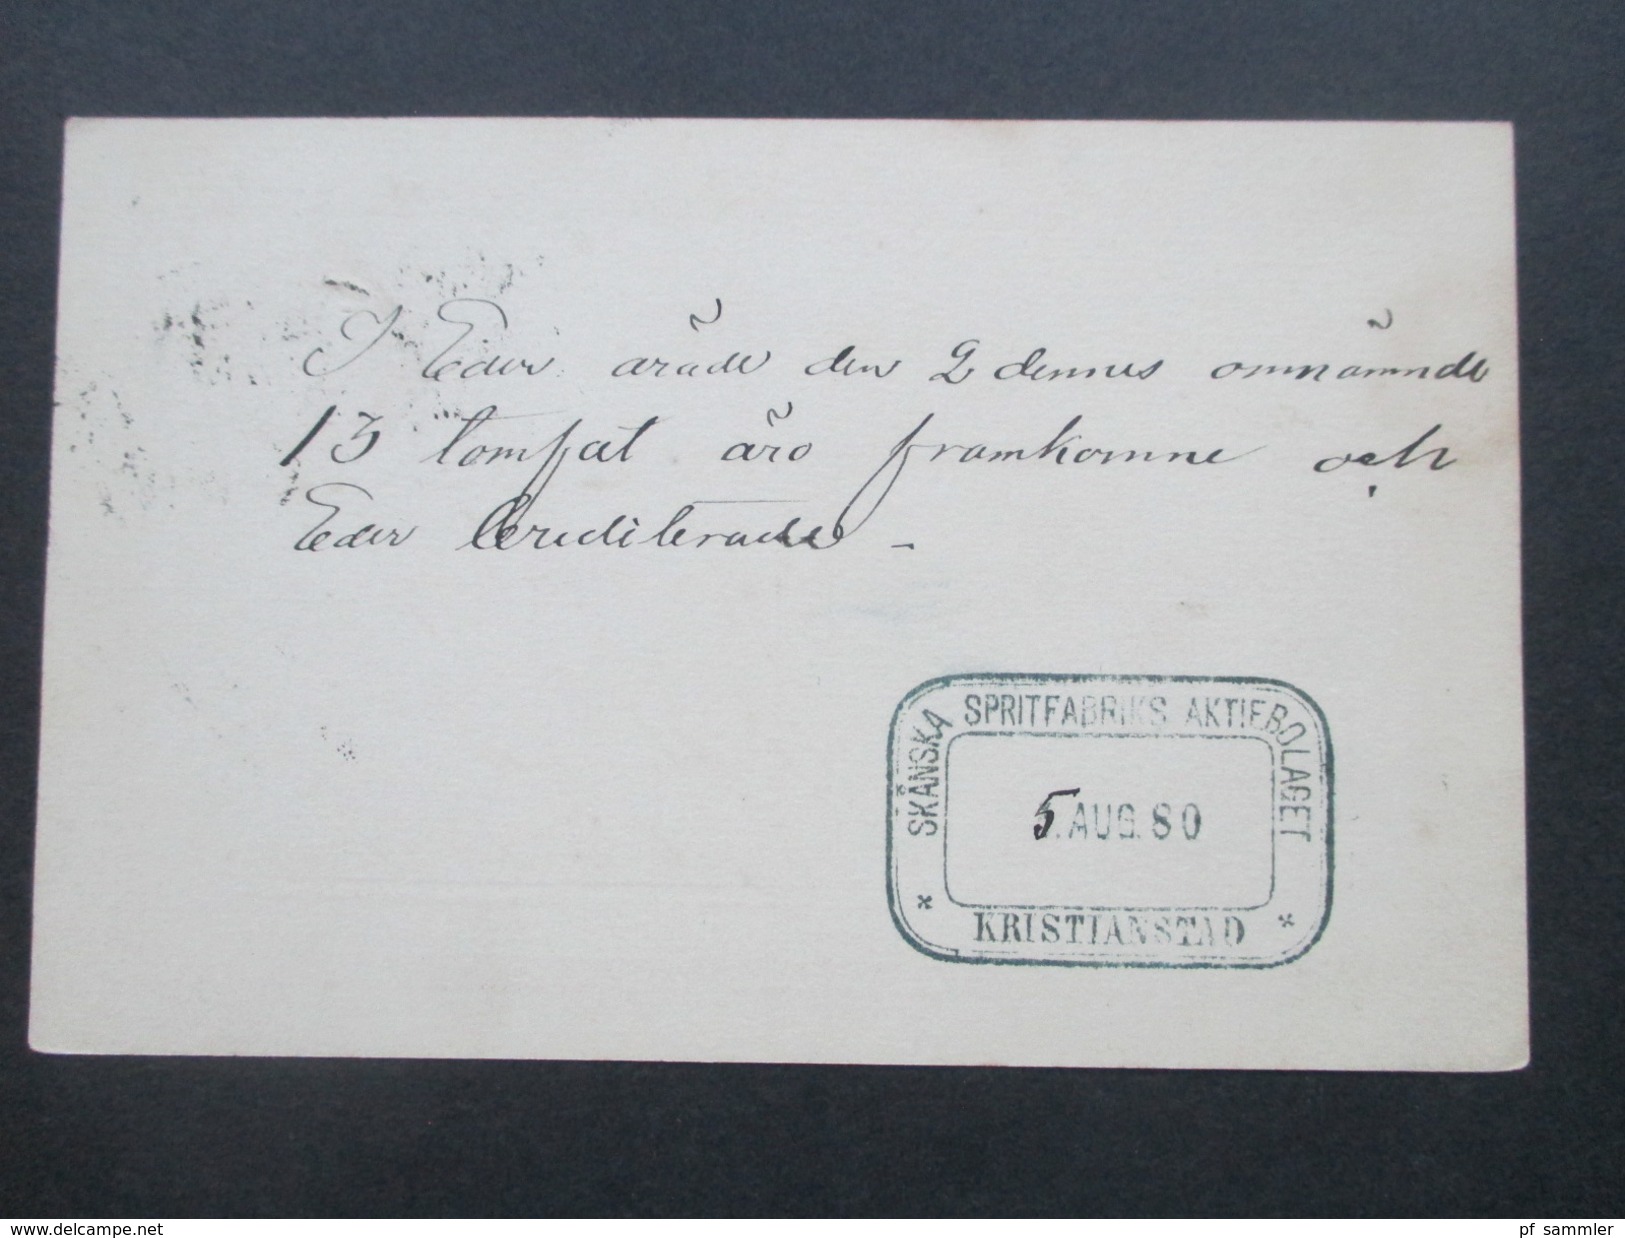 I Eder ärade den 2 dennes omnämnde
13 tomfat äro framkomne och
Eder Crediterade –
SKÅNSKA SPRITFABRIKS AKTIEBOLAGET
5. AUG. 80
* KRISTIANSTAD *
www.delcampe.net
pf_sammler